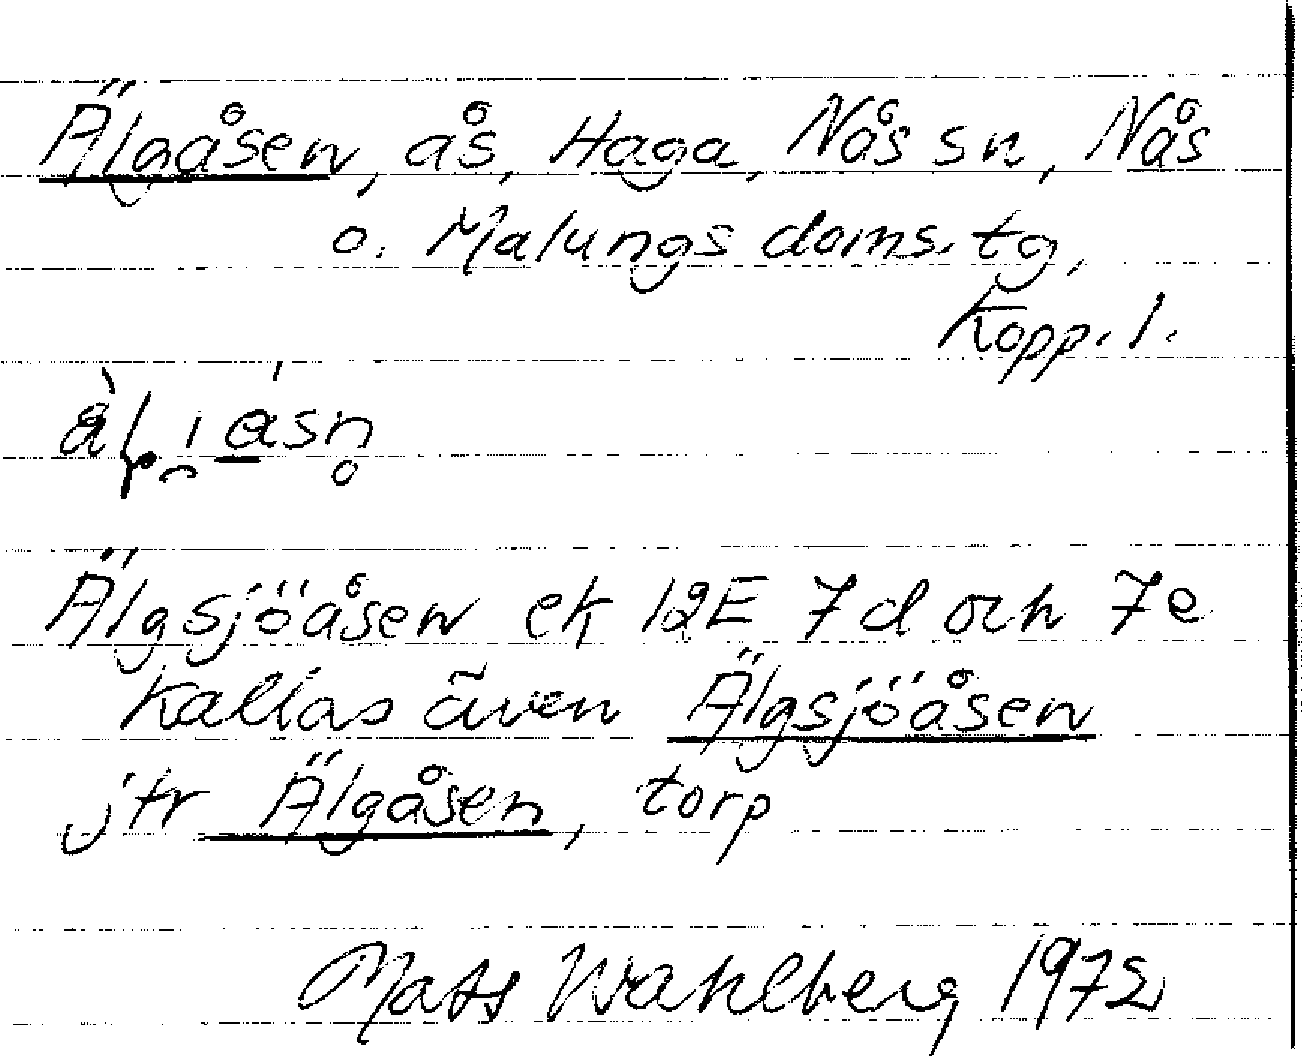 Älgåsen, ås, Haga, Nås sn, Nås
o. Malungs doms. tg,
Kopp. l.
Älgsjöåsen ek 12E 7d och 7e
kallas även Älgsjöåsen
jfr Älgåsen, torp
Mats Wahlberg 1972